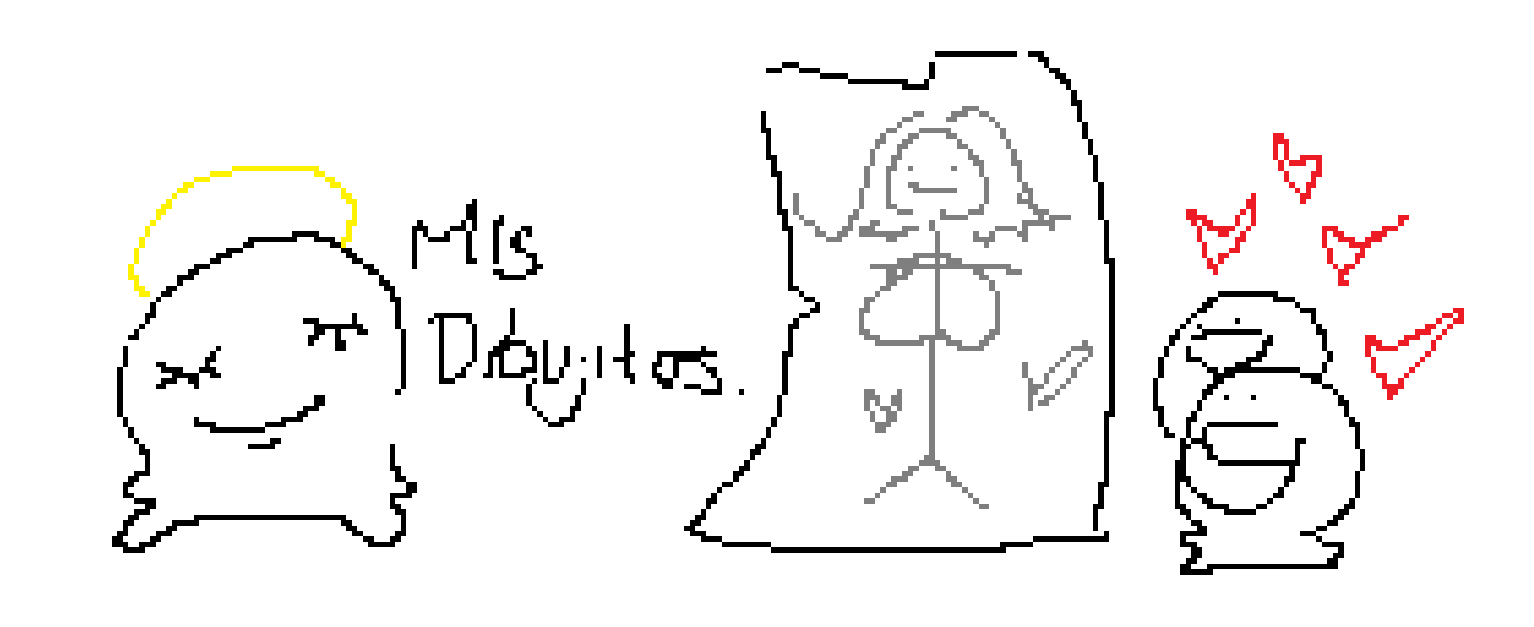 Mis
Dibujitos.